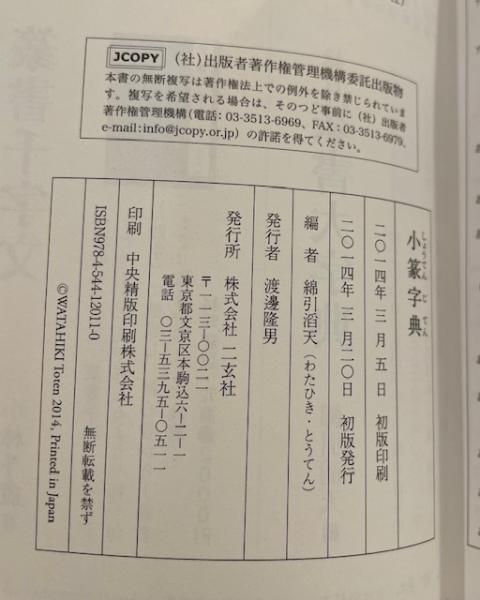 JCOPY (社)出版者著作権管理機構委託出版物
本書の無断複写は著作権法上での例外を除き禁じられていま
す。複写を希望される場合は、そのつど事前に(社)出版者
著作権管理機構(電話:03-3513-6969、FAX:03-3513-6979、
e-mail:info@jcopy.or.jp)の許諾を得てください。
小篆字典
しょうてん じてん
二〇一四年 三月 五日 初版印刷
二〇一四年 三月二〇日 初版発行
編者 綿引滔天(わたひき・とうてん)
発行者 渡邊隆男
発行所 株式会社 二玄社
〒一一三―〇〇二一
東京都文京区本駒込六―二―一
電話 〇三―五三九五―〇五一一
印刷 中央精版印刷株式会社
ISBN978-4-544-12011-0
無断転載を禁ず
©WATAHIKI Toten 2014, Printed in Japan